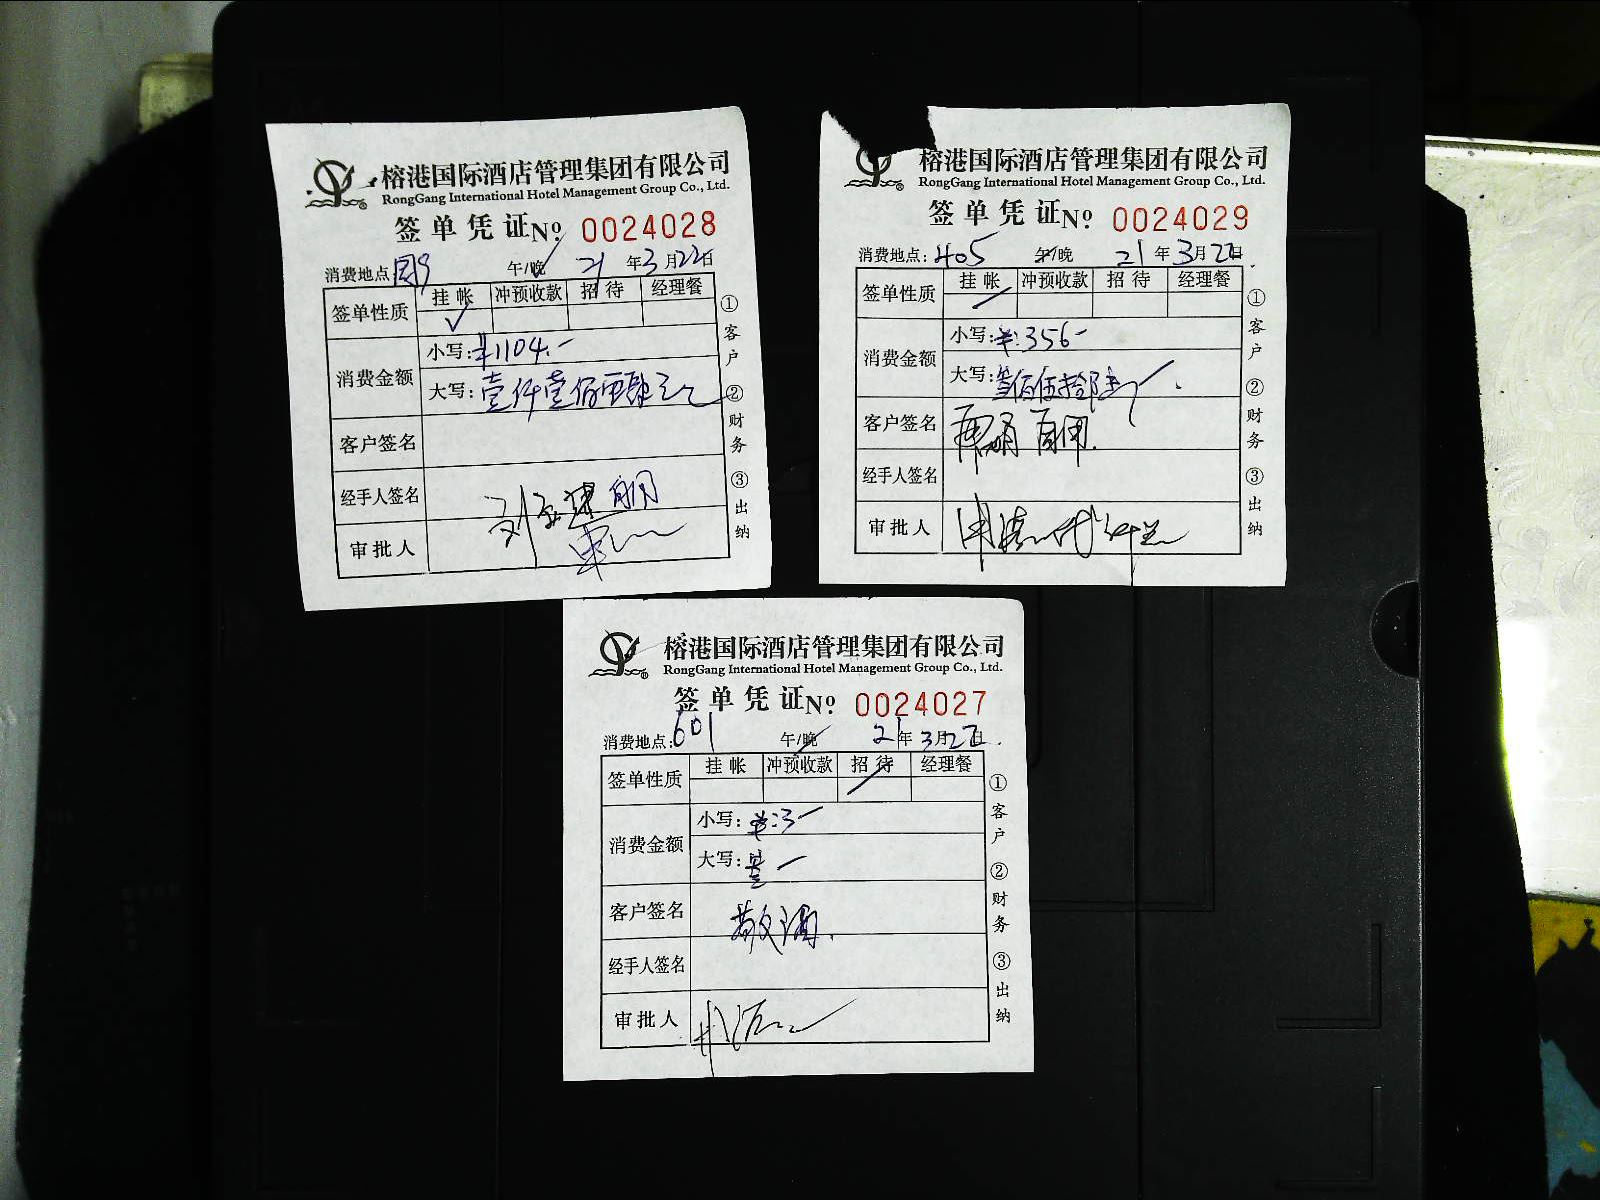 榕港国际酒店管理集团有限公司
RongGang International Hotel Management Group Co., Ltd.
签单凭证 No 0024028
消费地点: 午/晚 21年3月22日
签单性质 挂帐 冲预收款 招待 经理餐
✓
消费金额 小写:¥1104.-
大写:壹仟壹佰零肆元
客户签名
经手人签名
审批人
①客户 ②财务 ③出纳
榕港国际酒店管理集团有限公司
RongGang International Hotel Management Group Co., Ltd.
签单凭证 No 0024029
消费地点:405 午/晚 21年3月22日
签单性质 挂帐 冲预收款 招待 经理餐
消费金额 小写:¥:356-
大写:叁佰伍拾陆
客户签名
经手人签名
审批人
①客户 ②财务 ③出纳
榕港国际酒店管理集团有限公司
RongGang International Hotel Management Group Co., Ltd.
签单凭证 No 0024027
消费地点:601 午/晚 21年3月22日
签单性质 挂帐 冲预收款 招待 经理餐
消费金额 小写:¥:3-
大写:叁
客户签名
经手人签名
审批人
①客户 ②财务 ③出纳